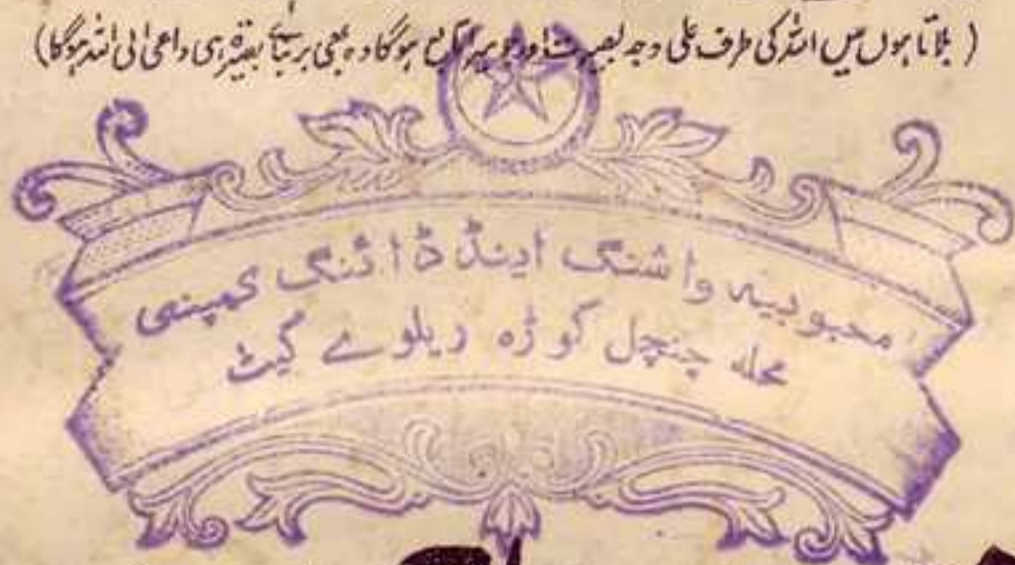 ( بلاتا ہوں میں اللہ کی طرف علی وجہ بصیرت اور جو میرا تابع ہوگا وہ بھی بر بنائے بصیرت ہی داعی الی اللہ ہوگا)
محبوبیہ واشنگ اینڈ ڈائنگ کمپنی
محلہ چنچل گوڑہ ریلوے گیٹ